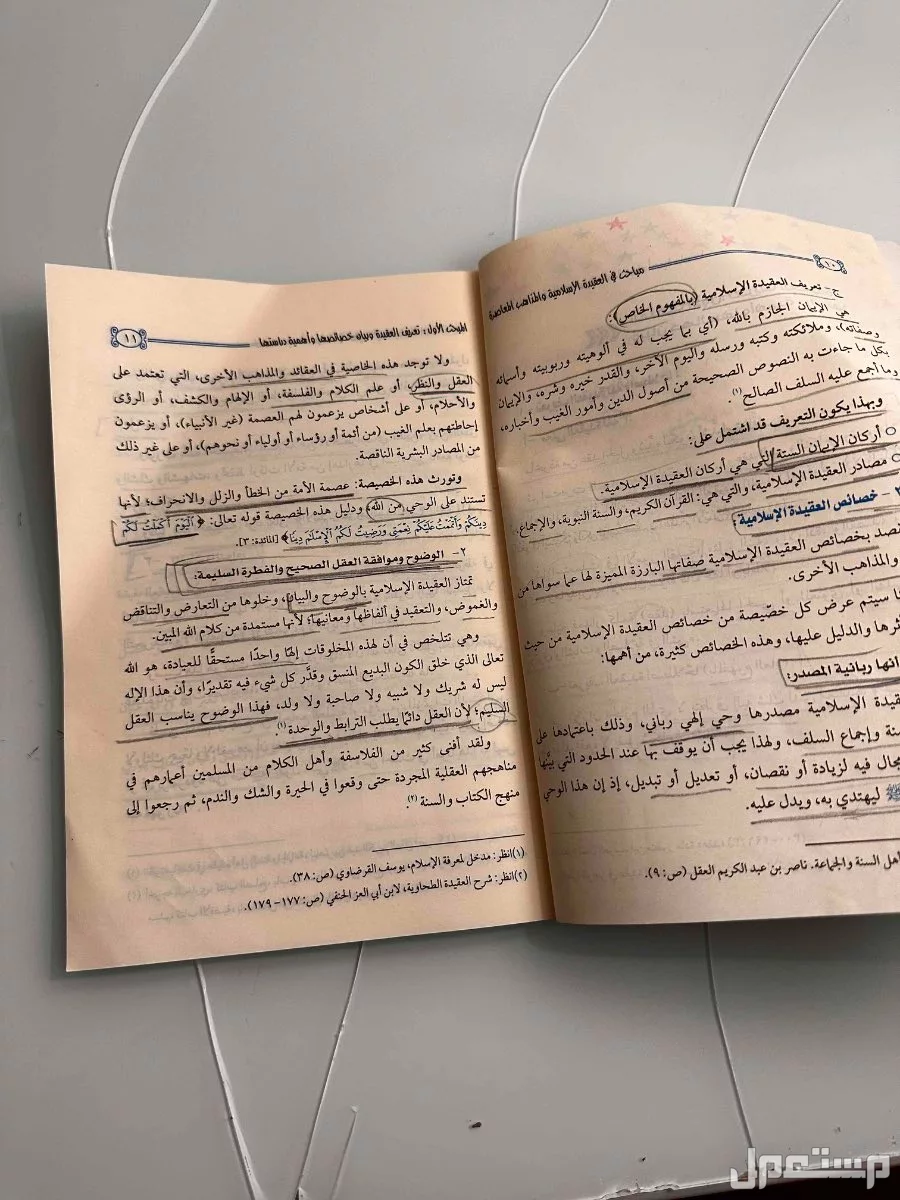 ١٠
مباحث في العقيدة الإسلامية والمذاهب المعاصرة
ج- تعريف العقيدة الإسلامية (بالمفهوم الخاص):
هي الإيمان الجازم بالله، (أي بما يجب له في ألوهيته وربوبيته وأسمائه
وصفاته)، وملائكته وكتبه ورسله واليوم الآخر، والقدر خيره وشره، والإيمان
بكل ما جاءت به النصوص الصحيحة من أصول الدين وأمور الغيب وأخباره،
وما أجمع عليه السلف الصالح(١).
وبهذا يكون التعريف قد اشتمل على:
○ أركان الإيمان الستة التي هي أركان العقيدة الإسلامية.
○ مصادر العقيدة الإسلامية، والتي هي: القرآن الكريم، والسنة النبوية، والإجماع.
٢- خصائص العقيدة الإسلامية:
بخصائص العقيدة الإسلامية صفاتها البارزة المميزة لها عما سواها من
والمذاهب الأخرى.
سيتم عرض كل خصّيصة من خصائص العقيدة الإسلامية من حيث
والدليل عليها، وهذه الخصائص كثيرة، من أهمها:
ربانية المصدر:
الإسلامية مصدرها وحي إلهي رباني، وذلك باعتمادها على
وإجماع السلف، ولهذا يجب أن يوقف بها عند الحدود التي بيَّنها
مجال فيه لزيادة أو نقصان، أو تعديل أو تبديل، إذ إن هذا الوحي
ﷺ ليهتدي به، ويدل عليه.
أهل السنة والجماعة. ناصر بن عبد الكريم العقل (ص: ٩).
المبحث الأول: تعريف العقيدة وبيان خصائصها وأهمية دراستها
١١
ولا توجد هذه الخاصية في العقائد والمذاهب الأخرى، التي تعتمد على
العقل والنظر، أو علم الكلام والفلسفة، أو الإلهام والكشف، أو الرؤى
والأحلام، أو على أشخاص يزعمون لهم العصمة (غير الأنبياء)، أو يزعمون
إحاطتهم بعلم الغيب (من أئمة أو رؤساء أو أولياء أو نحوهم)، أو على غير ذلك
من المصادر البشرية الناقصة.
وتورث هذه الخصيصة: عصمة الأمة من الخطأ والزلل والانحراف؛ لأنها
تستند على الوحي من الله، ودليل هذه الخصيصة قوله تعالى: ﴿ٱلۡيَوۡمَ أَكۡمَلۡتُ لَكُمۡ
دِينَكُمۡ وَأَتۡمَمۡتُ عَلَيۡكُمۡ نِعۡمَتِي وَرَضِيتُ لَكُمُ ٱلۡإِسۡلَٰمَ دِينٗا﴾ [المائدة: ٣].
٢- الوضوح وموافقة العقل الصحيح والفطرة السليمة:
تمتاز العقيدة الإسلامية بالوضوح والبيان، وخلوها من التعارض والتناقض
والغموض، والتعقيد في ألفاظها ومعانيها؛ لأنها مستمدة من كلام الله المبين.
وهي تتلخص في أن لهذه المخلوقات إلهًا واحدًا مستحقًا للعبادة، هو الله
تعالى الذي خلق الكون البديع المنسق وقدَّر كل شيء فيه تقديرًا، وأن هذا الإله
ليس له شريك ولا شبيه ولا صاحبة ولا ولد، فهذا الوضوح يناسب العقل
السليم؛ لأن العقل دائمًا يطلب الترابط والوحدة(١).
ولقد أفنى كثير من الفلاسفة وأهل الكلام من المسلمين أعمارهم في
مناهجهم العقلية المجردة حتى وقعوا في الحيرة والشك والندم، ثم رجعوا إلى
منهج الكتاب والسنة(٢).
(١) انظر: مدخل لمعرفة الإسلام، يوسف القرضاوي (ص: ٣٨).
(٢) انظر: شرح العقيدة الطحاوية، لابن أبي العز الحنفي (ص: ١٧٧-١٧٩).
مستعمل